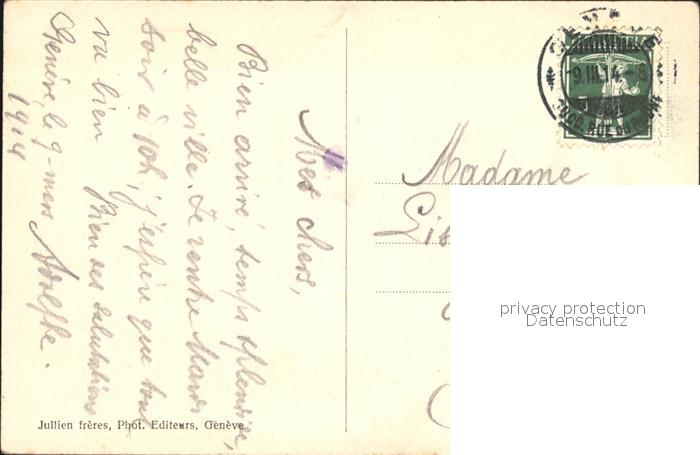 Mes chers,
Bien arrivé, temps splendide,
belle ville. Je rentre Mardi
soir à 90h, j'espère que tout
va bien Bien des salutations
Genève, le 9 mars
1914
Madame
Jullien frères, Phot. Editeurs, Genève
-9.III.14.-8
privacy protection
Datenschutz